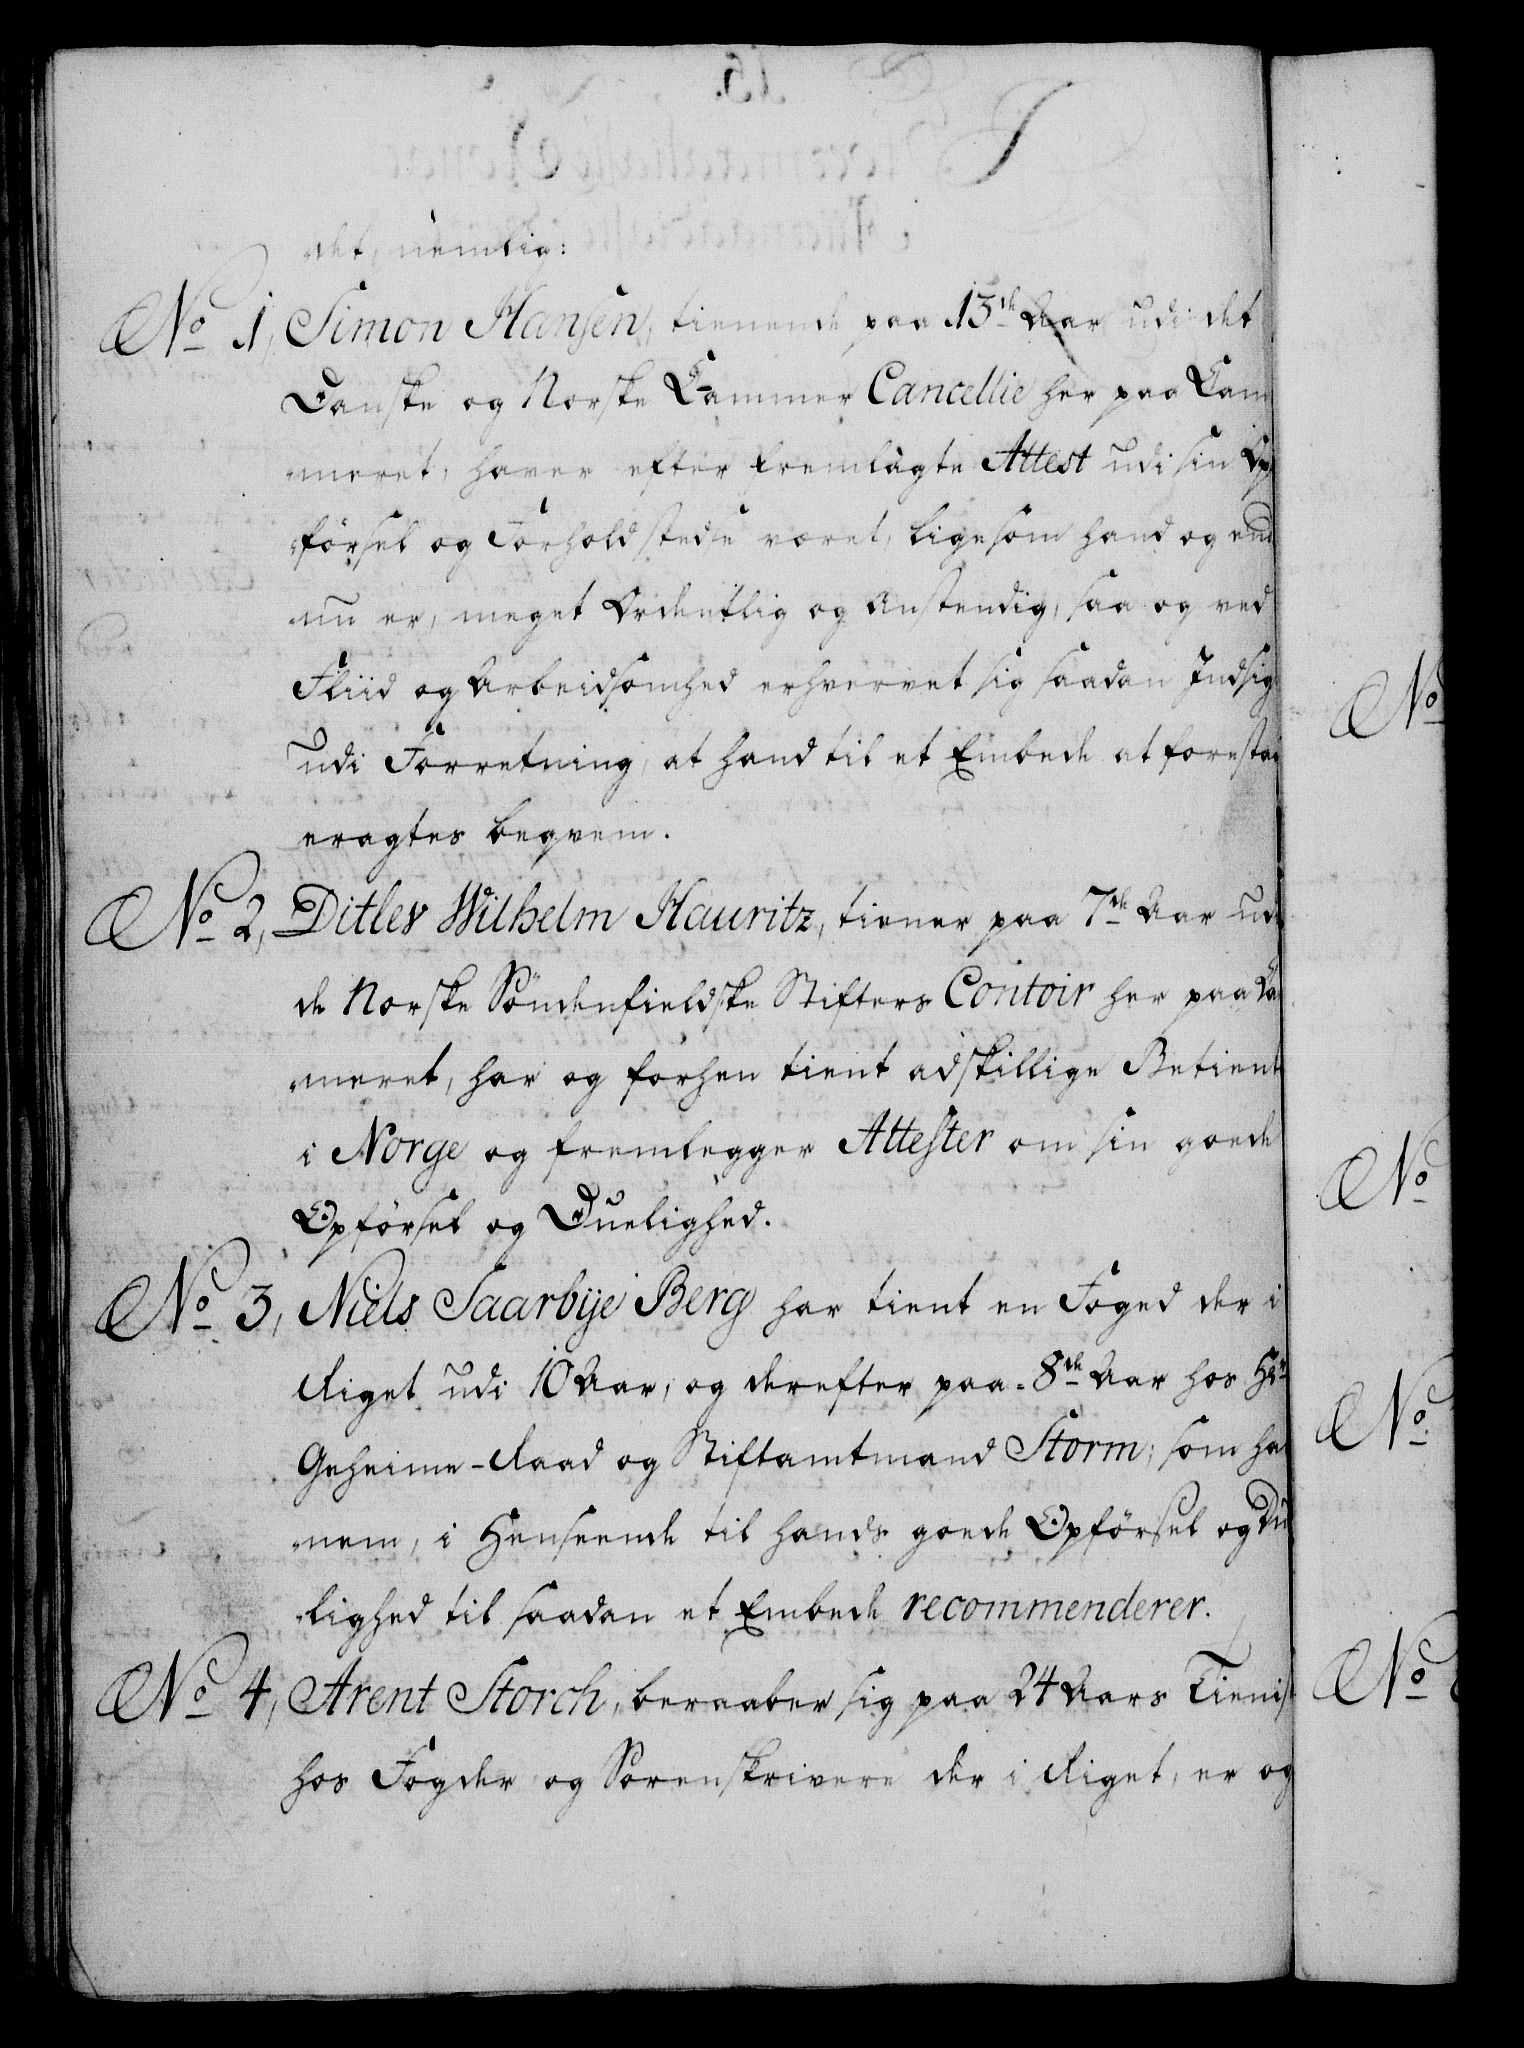 det, nemlig:
No 1, Simon Hansen, tienende paa 13de Aar udi det
Danske og Norske Cammer Cancellie her paa Cam
meret, haver efter fremlagte Attest udi sin Op
försel og Forhold stedse været, ligesom hand og end
nu er, meget Ordentlig og Anstendig, saa og ved
Fliid og Arbeidsomhed erhvervet sig saadan Indsig
udi Forretning, at hand til et Embede at forestaa
eragtes beqvem.
No 2, Ditlev Wilhelm Hauritz, tiener paa 7de Aar udi
de Norske Söndenfieldske Stifters Contoir her paa Ca
meret, har og forhen tient adskillige Betient
i Norge og fremlegger Attester om sin goede
Opförsel og Duelighed.
No 3, Niels Saarbye Berg har tient en Foged der i
Riget udi 10 Aar, og derefter paa 8de Aar hos Hr
Geheime-Raad og Stiftamtmand Storm; som ha
nem, i Henseende til hands goede Opförsel og Du
lighed til saadan et Embede recommenderer.
No 4, Arent Storch, beraaber sig paa 24 Aars Tienist
hos Fogder og Sorenskrivere der i Riget, er og
No
No
No
No